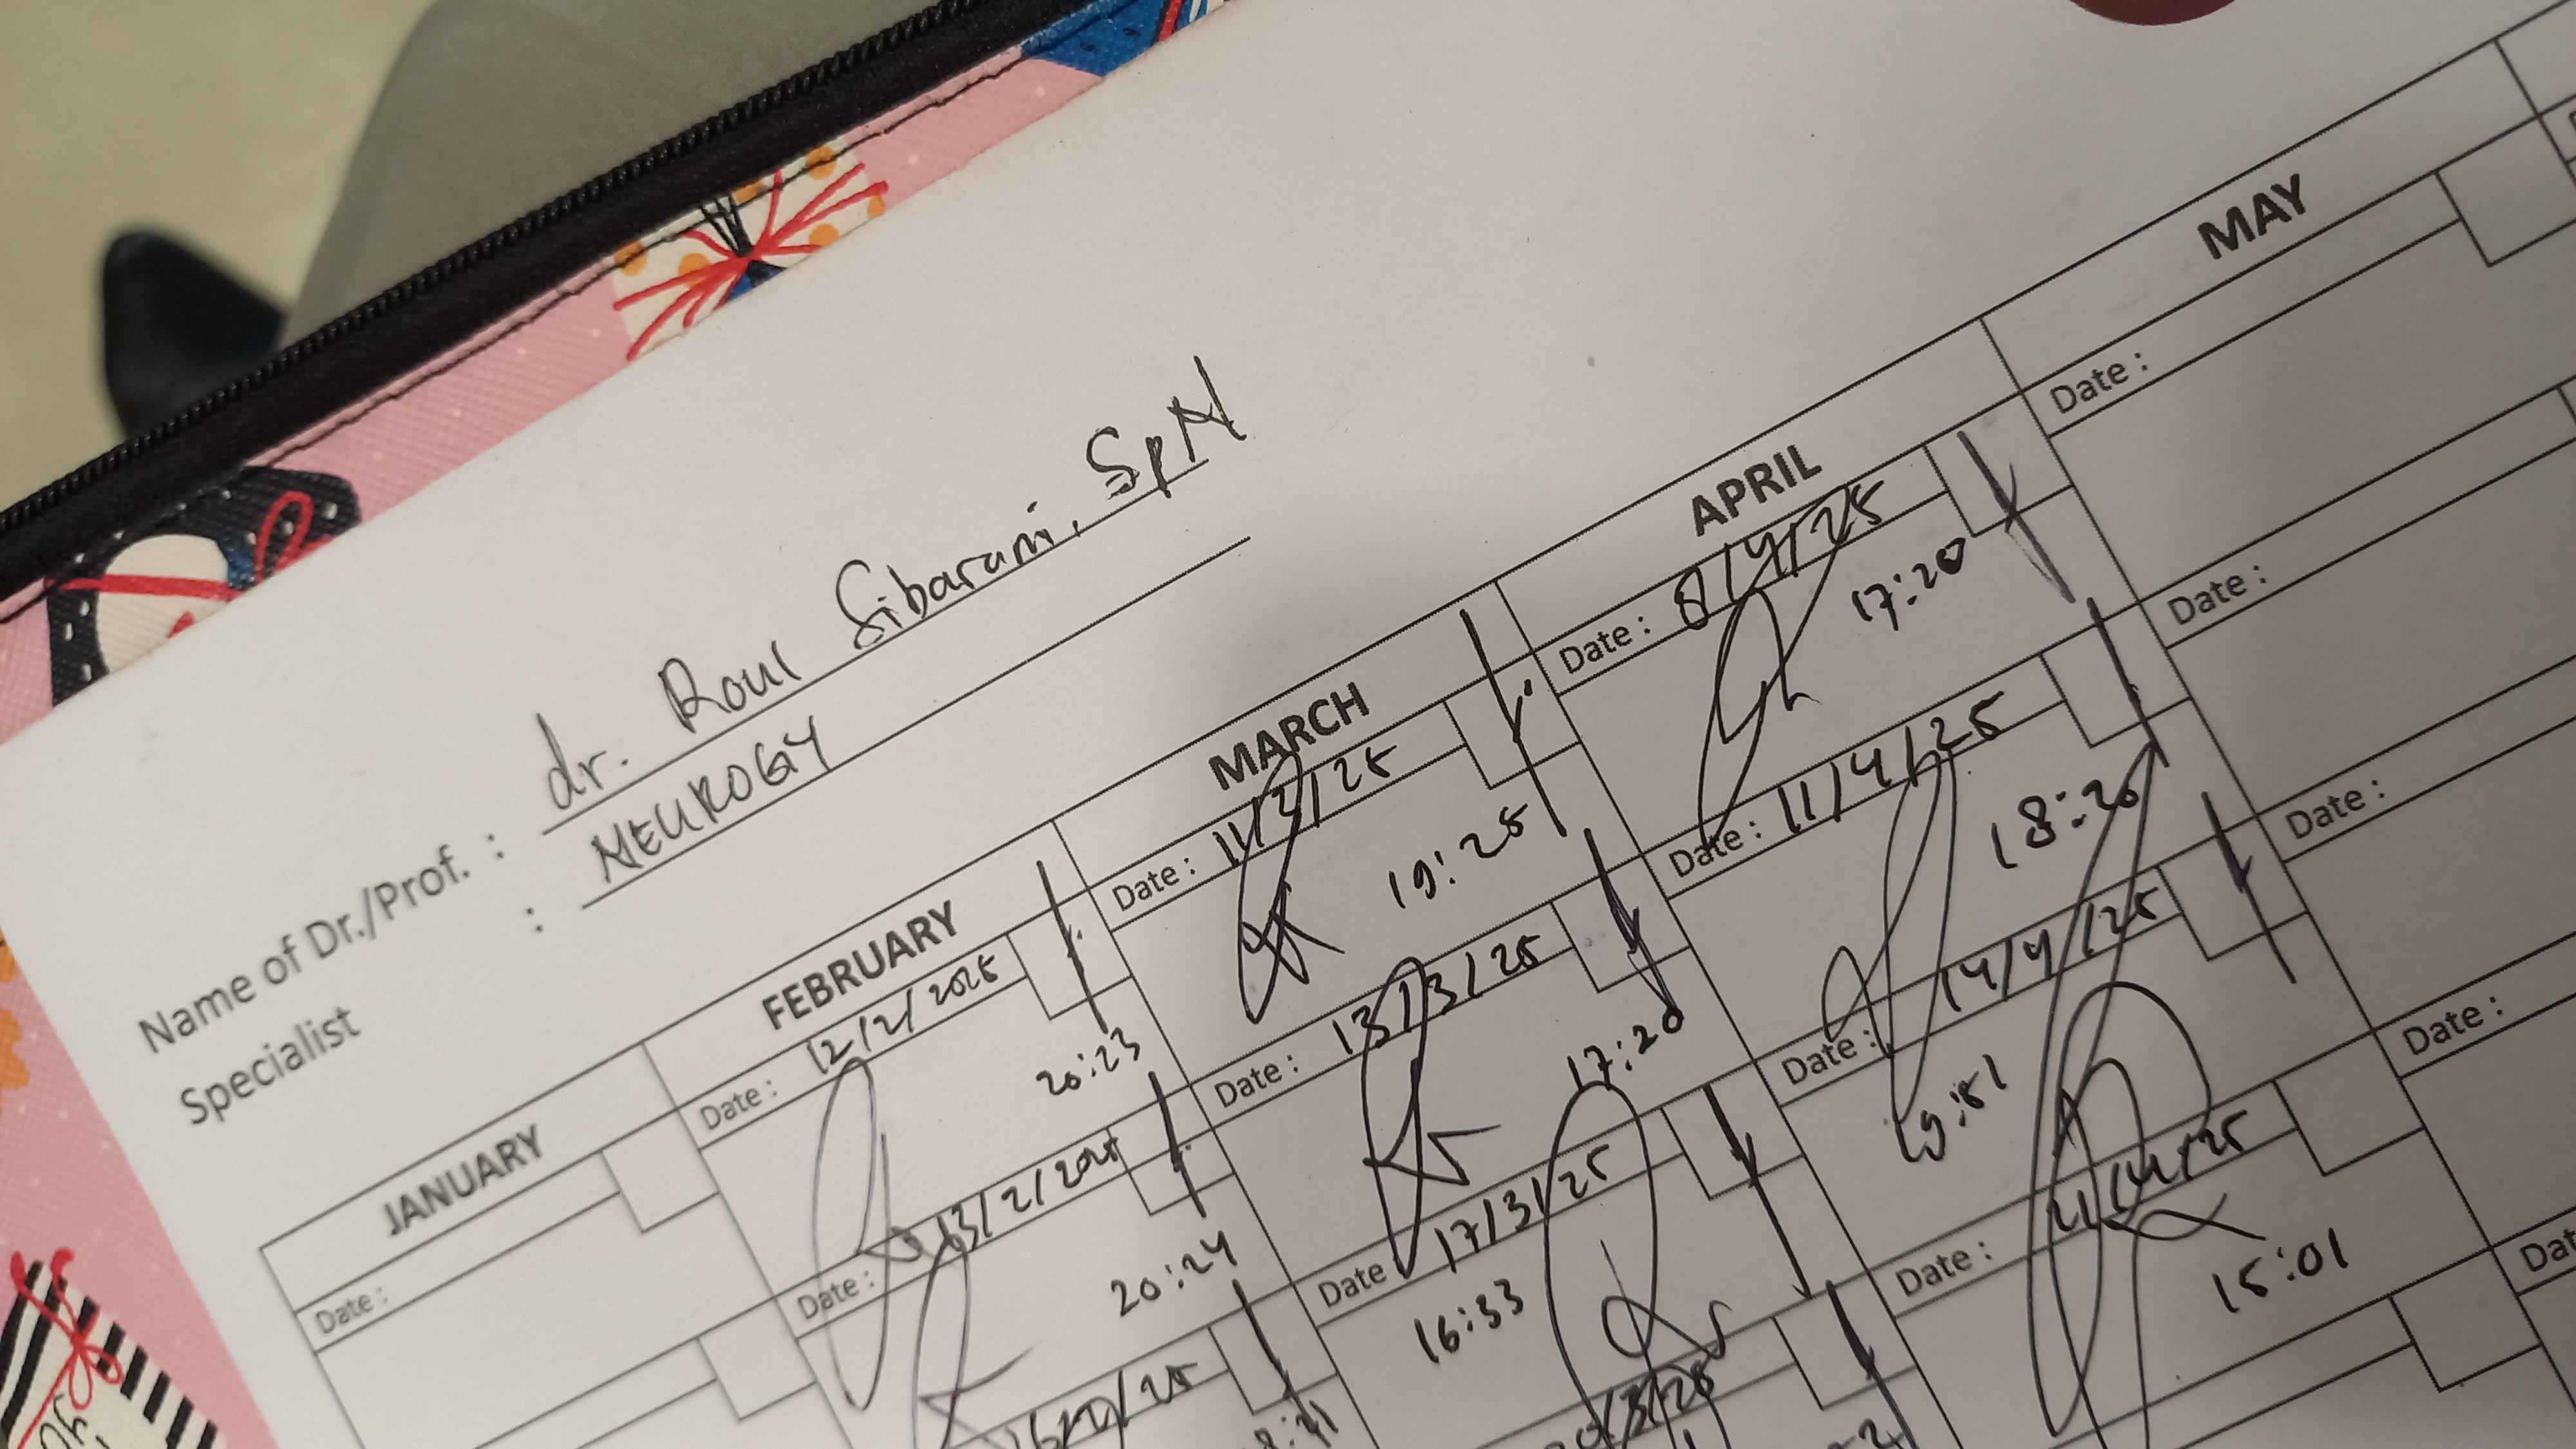 Name of Dr./Prof. : dr. Roul Sibarani, SpN
Specialist : NEUROGY
JANUARY FEBRUARY MARCH APRIL MAY
Date : Date : 12/2/2025 Date : 11/3/25 Date : 8/4/25 Date :
20:23 19:25 17:20
Date : 13/2/2025 Date : 13/3/25 Date : 11/4/25 Date :
20:24 17:20 18:20
/25 Date : 17/3/25 Date : 14/4/25 Date :
16:33 19:51
/3/25 Date : 21/4/25 Date :
15:01